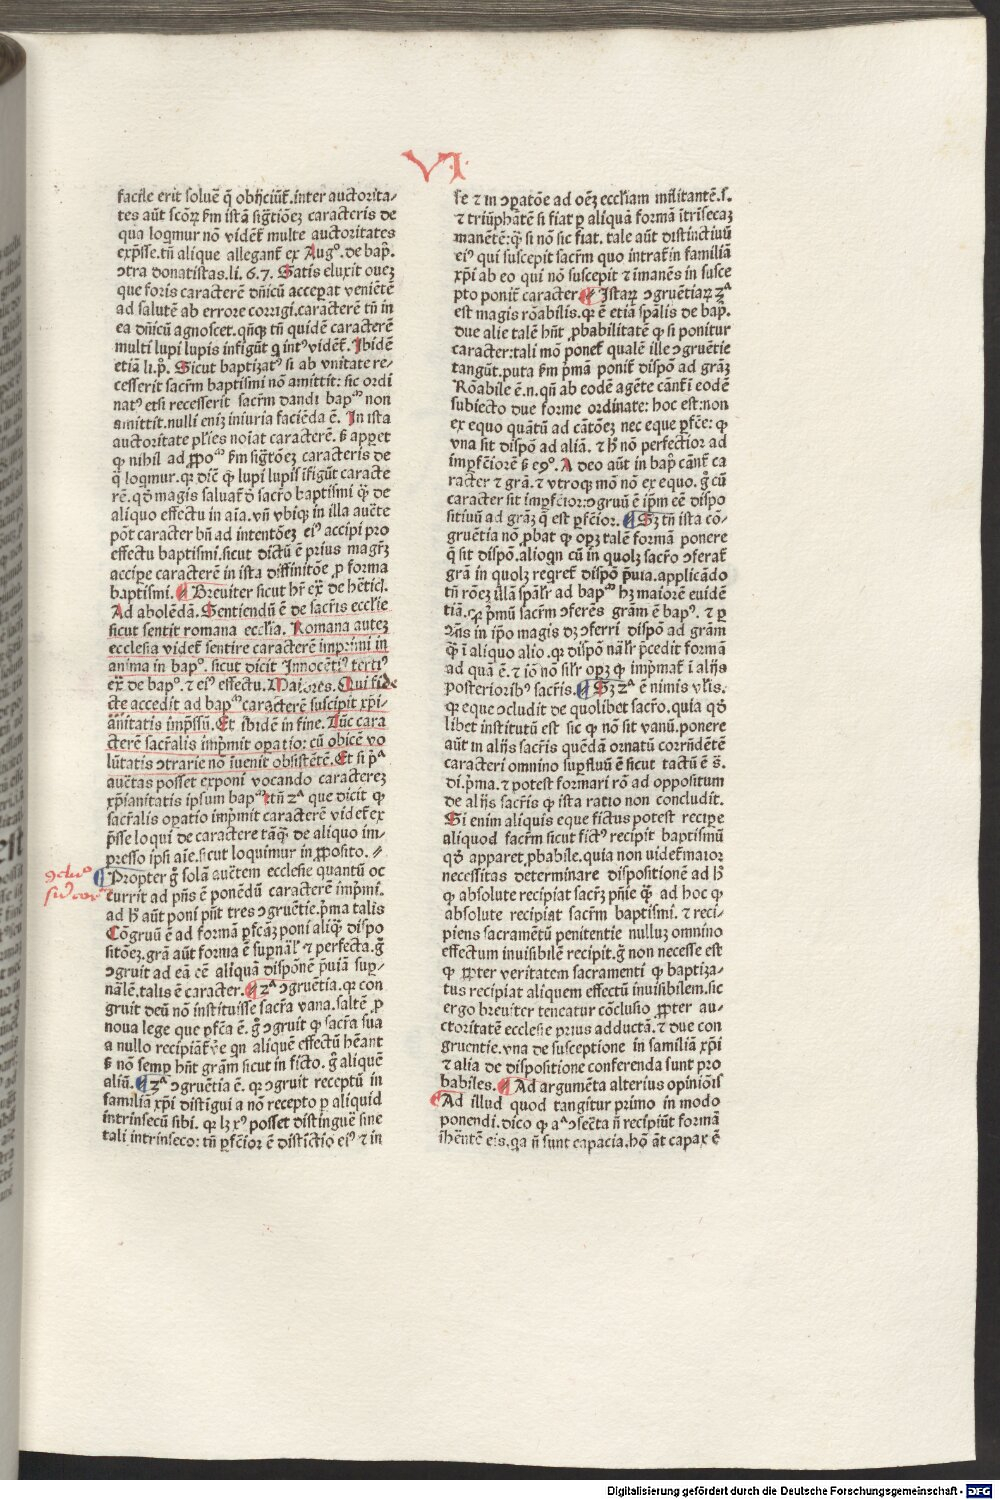 VI
facile erit soluē q̄ obijciūt̄.inter auctorita-
tes aūt scōꝝ ẜm istā sigtōeꝫ caracteris de
qua loqmur nō vidēt̄ multe auctoritates
exp̄sse.tn̄ alique allegant̄ ex Augᵒ.de bap̄.
ↄtra donatistas.li.6.7. Satis eluxit oueꝫ
que foris caracterē dn̄icū acceperat veniētē
ad salutē ab errore corrigi.caracterē tn̄ in
ea dn̄icū agnoscet.qn̄qꝫ tn̄ quidē caracterē
multi lupi lupis infigūt q intꝰ vidēt̄. Ibidē
etiā li.p̄. Sicut baptizatꝰ si ab vnitate re-
cesserit sacr̄m baptismi nō amittit: sic ordi
natꝰ etsi recesserit sacr̄m dandi bapᵐ non
amittit.nulli enīꝫ iniuria faciēda ē. In ista
auctoritate pl̄ies noīat caracterē. ẜ apparet
ꝙ nihil ad ꝓpoᵐ ẜm sigtōeꝫ caracteris de
q̄ loqmur.qꝛ dic̄ ꝙ lupi lupis īfigūt caracte
rē.qd̄ magis saluat̄ d̄ sacr̄o baptismi q̄ꝫ de
aliquo effectu in aīa.vn̄ vbiqꝫ in illa aucte
pōt caracter bn̄ ad intentōeꝫ eiꝰ accipi pro
effectu baptismi.sicut dictū ē prius magr̄ꝫ
accipe caracterē in ista diffinitōe ꝓ forma
baptismi. Breuiter sicut hr̄ ex̄ de hēticͥ.
Ad abolēdā. Sentiendū ē de sacr̄is ecclīe
sicut sentit romana ecclīa. Romana auteꝫ
ecclesia videt̄ sentire caracterē imprimi in
anima in bapᵒ. sicut dicit Innocētiꝰ tertiꝰ
ex̄ de bapᵒ. ⁊ eiꝰ effectu. Maiores. Qui ficte
accedit ad bapᵐ caracterē suscipit xp̄i-
anitatis imp̄ssū. Et ibidē in fine. Tūc cara
cterē sacr̄alis impͥmit opatio: cū obicē vo
lūtatis ↄtrarie nō īuenit obsistētē. Et si pͥᵃ
auctas posset exponi vocando caractereꝫ
xp̄ianitatis ipsum bapᵐ tn̄ 2ᵃ que dicit ꝙ
sacr̄alis opatio impͥmit caracterē videt̄ ex
p̄sse loqui de caractere tāqꝫ de aliquo im-
presso ipsi aīe.sicut loquimur in ꝓposito.
ↄcluᵒ
Propter g̊ solā auctem ecclesie quantū oc
currit ad pn̄s ē ponēdū caracterē impͥmi.
ad h̄ aūt poni pn̄t tres ↄgruētie.pͥma talis
Cōgruū ē ad formā ꝑfcāꝫ poni aliqꝫ dispo
sitōeꝫ.grā aūt forma ē supnāl̄ ⁊ perfecta.g̊
ↄgruit ad eā eē aliquā dispōnē p̄uiā sup-
nālē.talis ē caracter. 2ᵃ ↄgruētia.qꝛ con
gruit deū nō instituisse sacr̄a vana.saltē ꝑ
noua lege que ꝑfca ē. g̊ ↄgruit ꝙ sacr̄a sua
a nullo recipiāt̄ ſe qn aliquē effectū hēant
ẜ nō semꝑ hn̄t grām sicut in ficto. g̊ aliquē
aliū. 3ᵃ ↄgruētia ē. qꝛ ↄgruit receptū in
familiā xp̄i distīgui a nō recepto ꝑ aliquid
intrinsecū sibi. qꝛ lꝫ xꝰ posset distinguē sine
tali intrinseco: tn̄ ꝑfcior ē distictio eiꝰ ⁊ in
se ⁊ in ↄꝑatōe ad oēꝫ eccliam militantē.s.
⁊ triūphātē si fiat ꝑ aliquā formā ītrīsecaꝫ
manētē:qꝫ si nō sic fiat. tale aūt distinctiuū
eiꝰ qui suscepit sacr̄m quo intrat̄ in familiā
xp̄i ab eo qui nō suscepit ⁊ īmanēs in susce
pto ponit̄ caracter. Istaꝝ ↄgruētiaꝝ 3ᵃ
est magis rōabilis.qꝛ ē etiā spālis de bap̄.
due alie talē hn̄t ꝓbabilitatē ꝙ si ponitur
caracter:tali mō ponet̄ qualē ille ↄgruētie
tangūt.puta ẜm pͥmā ponit̄ dispō ad grāꝫ
Rōabile ē.n.qn̄ ab eodē agēte cānt̄ ī eodē
subiecto due forme ordinate: hoc est:non
ex equo quātū ad cātōeꝫ nec eque ꝑfce: ꝙ
vna sit dispō ad aliā. ⁊ h̄ nō perfectior ad
imꝑfciorē ẜ eↄᵒ. A deo aūt in bap̄ cānt̄ ca
racter ⁊ grā. ⁊ vtroqꝫ mō nō ex equo. g̊ cū
caracter sit imꝑfcior:ↄgruū ē ip̄m eē dispo
sitiuū ad grāꝫ q̄ est ꝑfcior. Sꝫ tn̄ ista cō-
gruētia nō ꝓbat ꝙ opꝫ talē formā ponere
q̄ sit dispō.alioqn cū in quolꝫ sacr̄o ↄferat̄
grā in quolꝫ regret̄ dispō p̄uia.applicādo
tn̄ rōeꝫ illā spālr̄ ad bapᵐ hꝫ maiorē euidē
tiā.qꝛ pͥmū sacr̄m ↄferēs grām ē bapꝰ. ⁊ ꝑ
ↄn̄s in ip̄o magis dꝫ ↄferri dispō ad grām
q̄ꝫ ī aliquo alio.qꝛ dispō nālr̄ p̄cedit formā
ad quā ē. ⁊ iō nō silr̄ opꝫ ꝙ impͥmat̄ ī alijs
posterioribꝰ sacr̄is. Sꝫ 2ᵃ ē nimis vl̄is.
qꝛ eque ↄcludit de quolibet sacr̄o.quia qd̄
libet institutū est sic ꝙ nō sit vanū.ponere
aūt in alijs sacr̄is quēdā ornatū corrn̄dētē
caracteri omnino supfluū ē sicut tactū ē s̄.
di.pͥma. ⁊ potest formari rō ad oppositum
de alijs sacr̄is ꝙ ista ratio non concludit.
Si enim aliquis eque fictus potest recipe
aliquod sacr̄m sicut fictꝰ recipit baptismū
qd̄ apparet ꝓbabile.quia non videt̄ maior
necessitas determinare dispositionē ad h̄
ꝙ absolute recipiat sacr̄ꝫ pnīe qꝫ ad hoc ꝙ
absolute recipiat sacr̄m baptismi. ⁊ reci-
piens sacramētū penitentie nulluꝫ omnino
effectum inuisibilem recipit.g̊ non necesse est
ꝙ ꝓpter veritatem sacramenti ꝙ baptiza-
tus recipiat aliquem effectū inuisibilem.sic
ergo breuiter teneatur cōclusio ꝓpter au-
ctoritatē ecclesie prius adductā. ⁊ due con
gruentie.vna de susceptione in familiā xp̄i
⁊ alia de dispositione conferenda sunt pro
babiles. Ad argumēta alterius opiniōis
Ad illud quod tangitur primo in modo
ponendi.dico ꝙ aᵃ ↄsecta n̄ recipiūt formā
īhētē eis.qa n̄ sunt capacia.hō āt capax ē
Digitalisierung gefördert durch die Deutsche Forschungsgemeinschaft - DFG